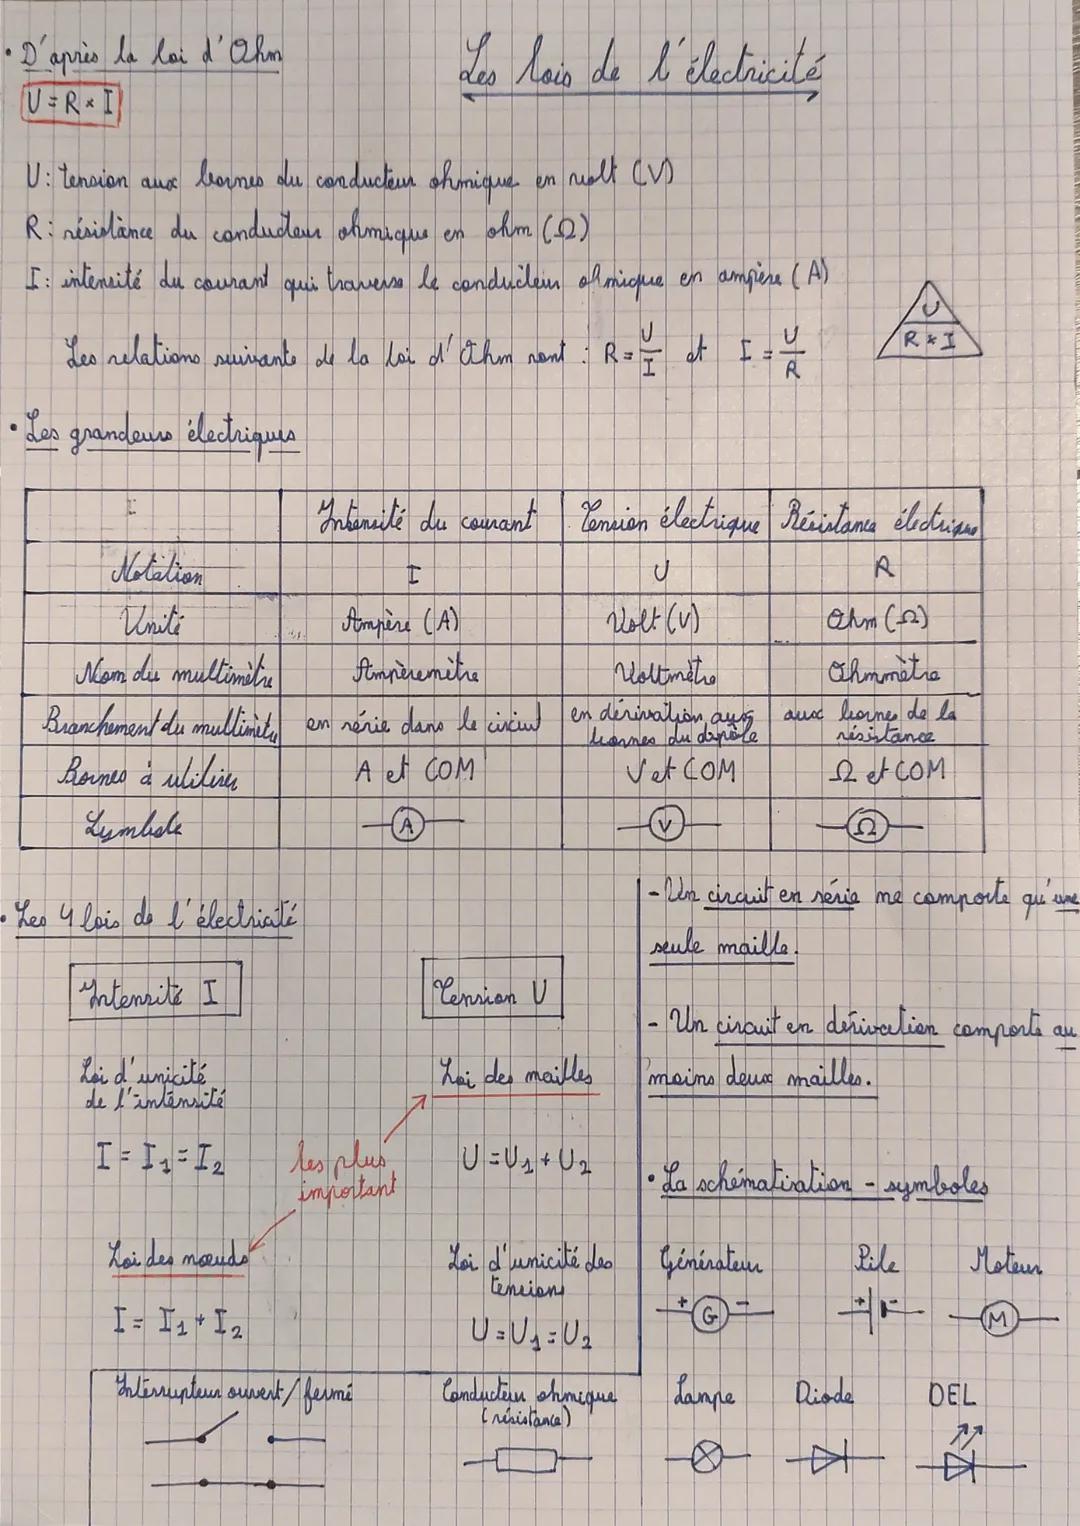 • D'après la loi d'Ohm
Les lois de l'électricité
U = R × I
U : tension aux bornes du conducteur ohmique en volt (V)
R : résistance du conducteur ohmique en ohm (Ω)
I : intensité du courant qui traverse le conducteur ohmique en ampère (A)
U
R × I
Les relations suivante de la loi d'Ohm sont : R = U/I et I = U/R
• Les grandeurs électriques
Intensité du courant Tension électrique Résistance électrique
Notation I U R
Unité Ampère (A) Volt (V) Ohm (Ω)
Nom du multimètre Ampèremètre Voltmètre Ohmmètre
Branchement du multimètre en série dans le circuit en dérivation aux bornes du dipôle aux bornes de la résistance
Bornes à utiliser A et COM V et COM Ω et COM
Symbole A V Ω
• Les 4 lois de l'électricité
Intensité I
Tension U
Loi d'unicité
de l'intensité
Loi des mailles
I = I1 = I2
les plus
important
U = U1 + U2
Loi des nœuds
Loi d'unicité des
tensions
I = I1 + I2
U = U1 = U2
- Un circuit en série ne comporte qu'une
seule maille.
- Un circuit en dérivation comporte au
moins deux mailles.
• La schématisation - symboles
Générateur Pile Moteur
+ G - + - M
Interrupteur ouvert / fermé
Conducteur ohmique
(résistance)
Lampe Diode DEL